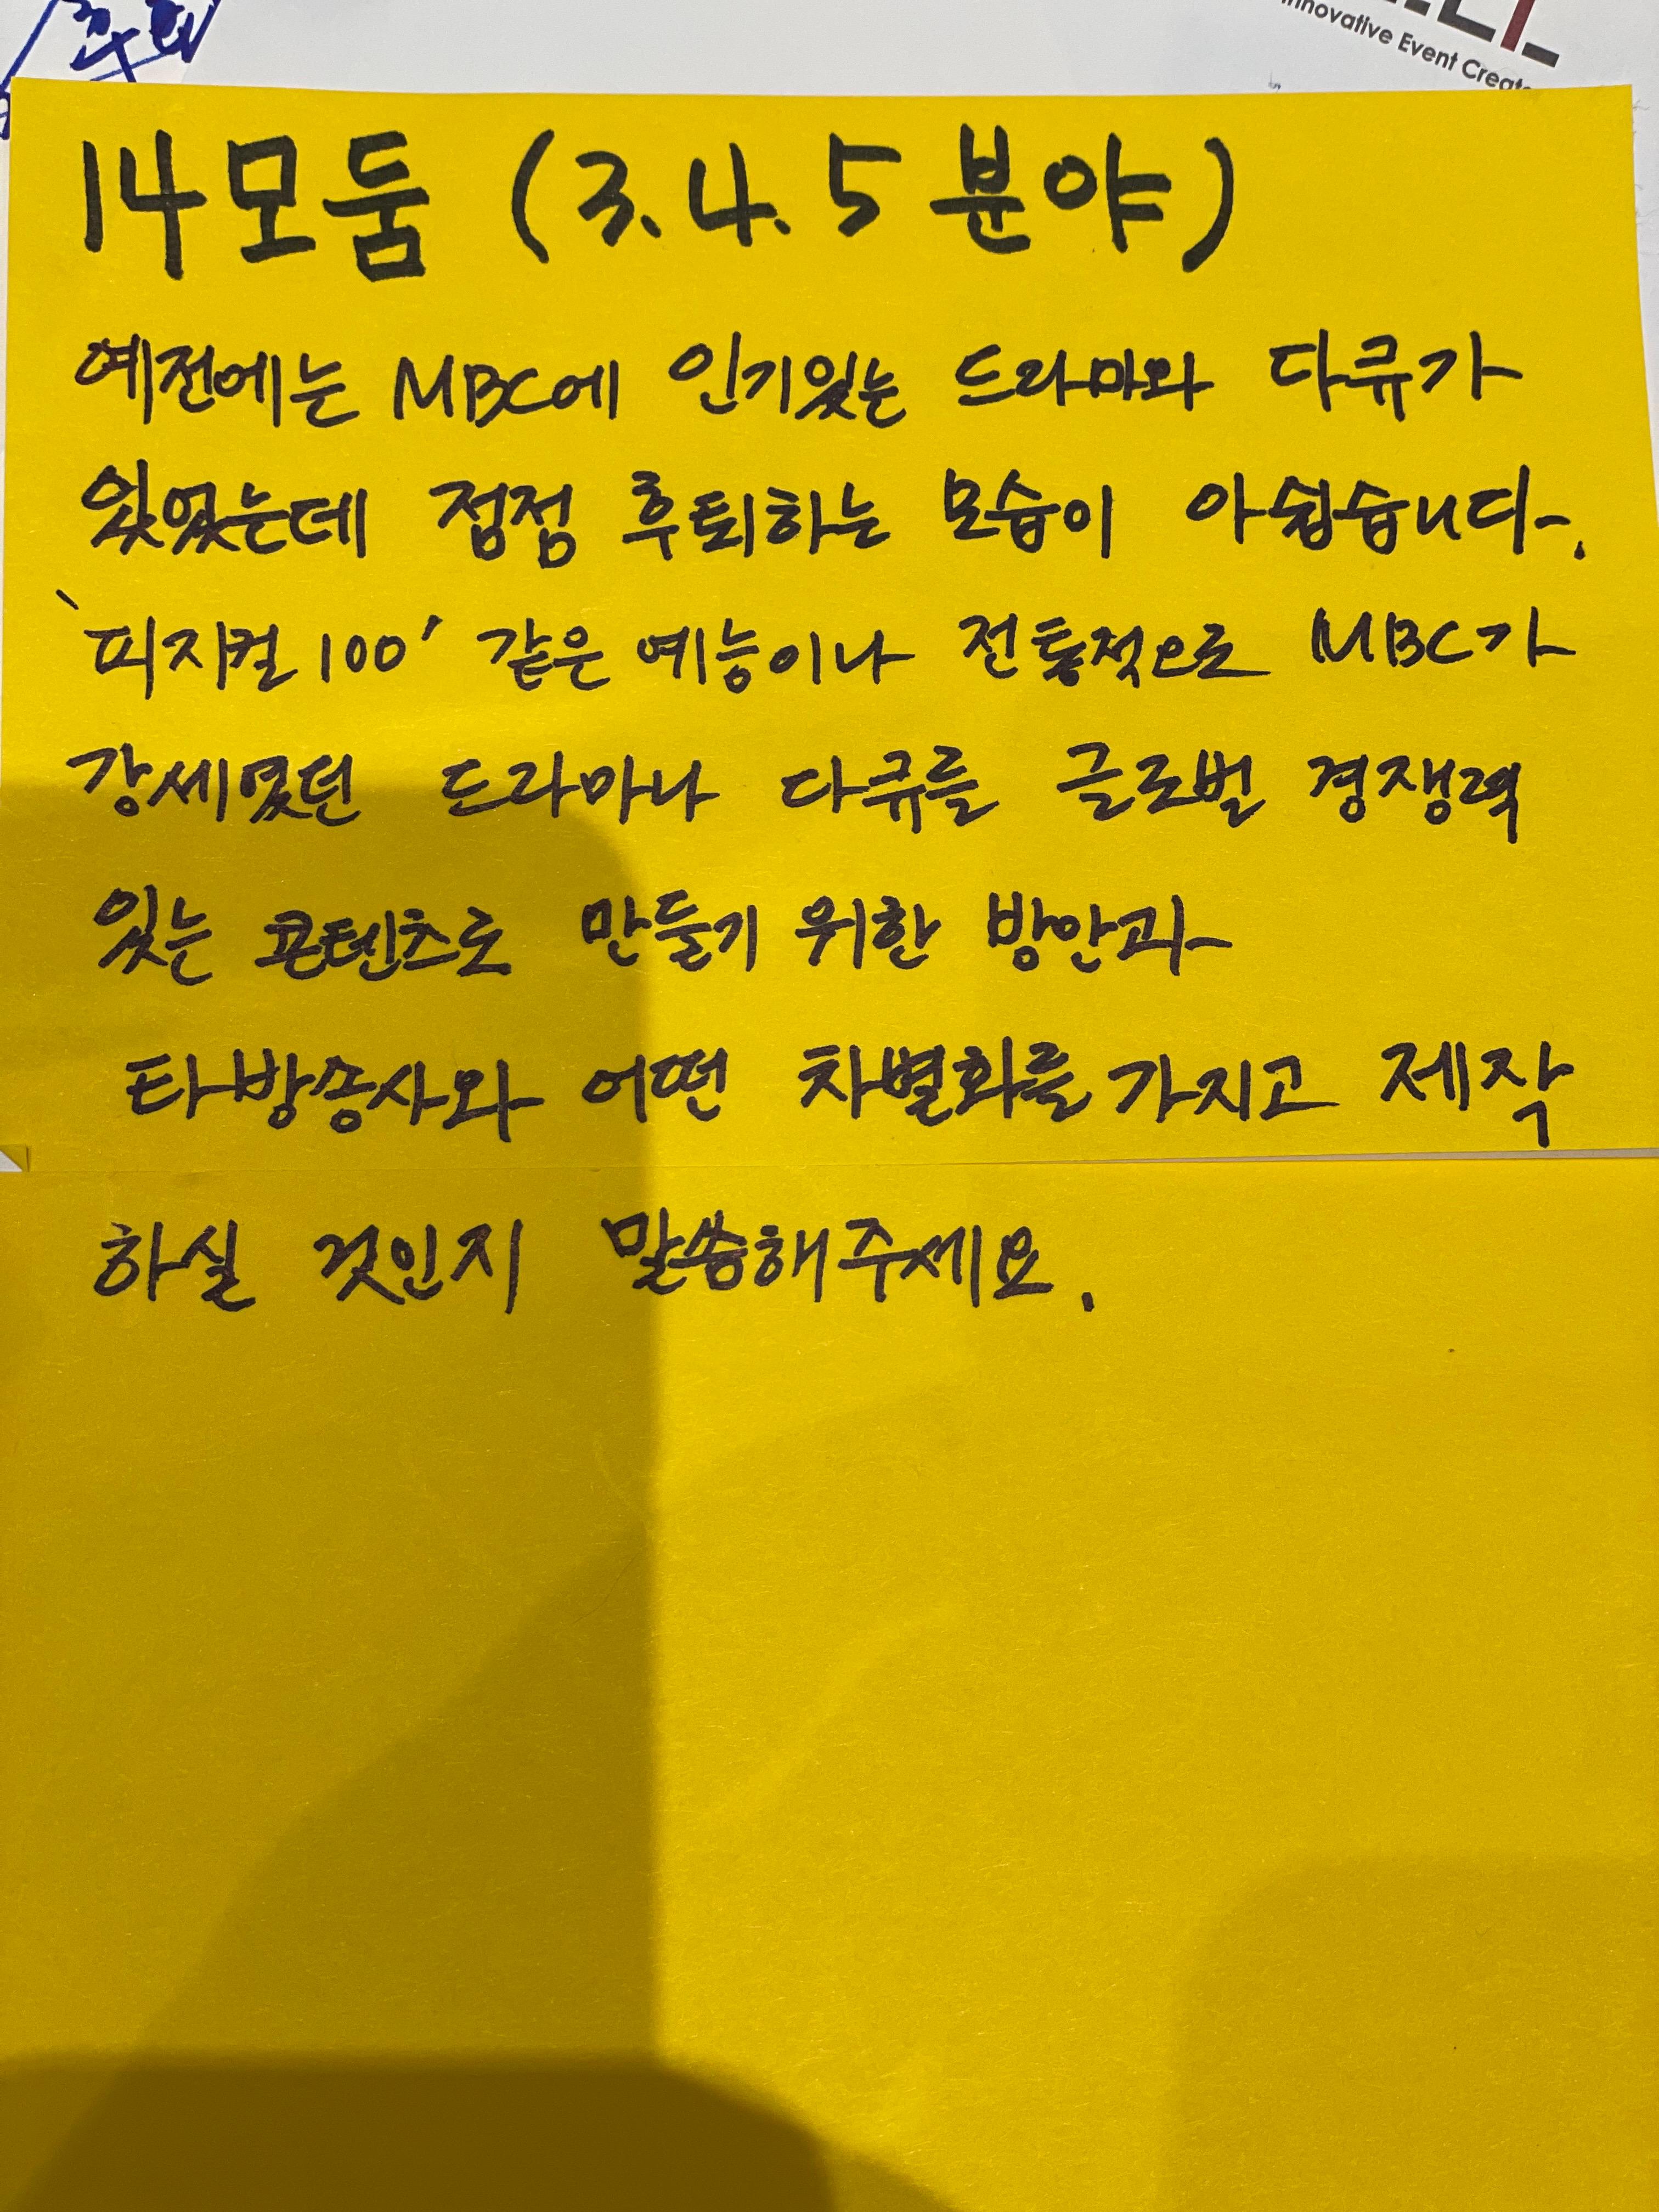 Innovative Event Creat
14모둠 (3.4.5 분야)
예전에는 MBC에 인기있는 드라마와 다큐가
있었는데 점점 후퇴하는 모습이 아쉽습니다.
'피지컬100' 같은 예능이나 전통적으로 MBC가
강세였던 드라마나 다큐를 글로벌 경쟁력
있는 콘텐츠로 만들기 위한 방안과
타방송사와 어떤 차별화를 가지고 제작
하실 것인지 말씀해주세요.